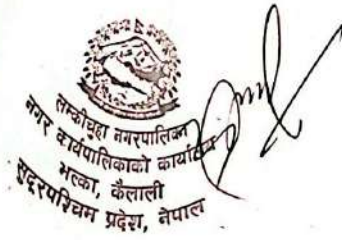 लम्कीचुहा नगरपालिका
नगर कार्यपालिकाको कार्यालय
भल्का, कैलाली
सुदूरपश्चिम प्रदेश, नेपाल